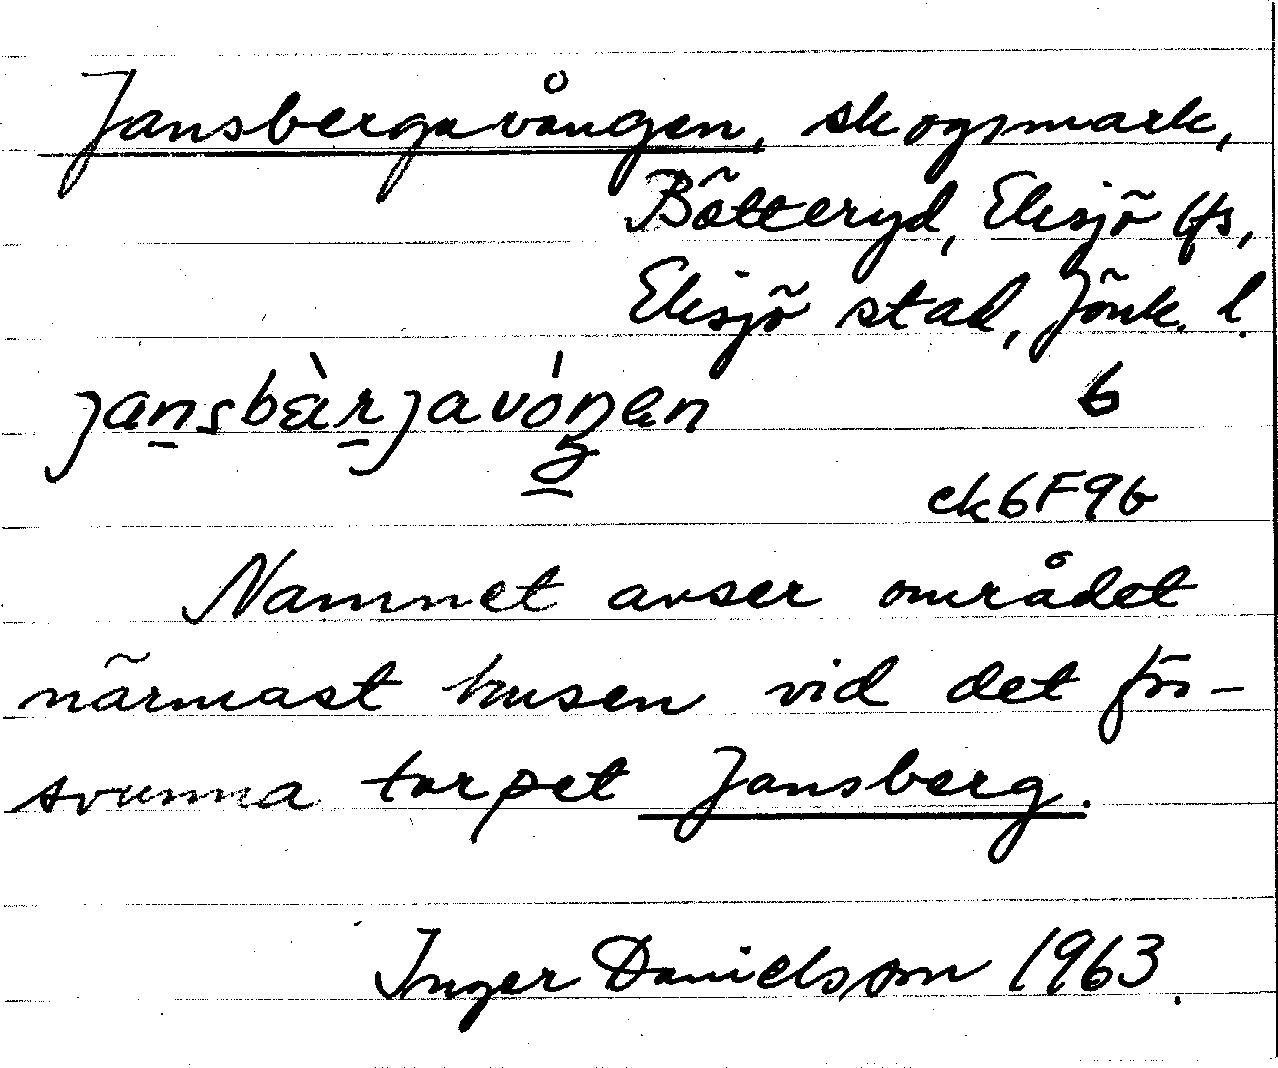 Jansbergavången, skogsmark,
Bötteryd, Eksjö lfs,
Eksjö stad, Jönk. l.
jansbàrjavóŋen 6
ek6F9b
Namnet avser området
närmast husen vid det för-
svunna torpet Jansberg.
Inger Danielsson 1963.